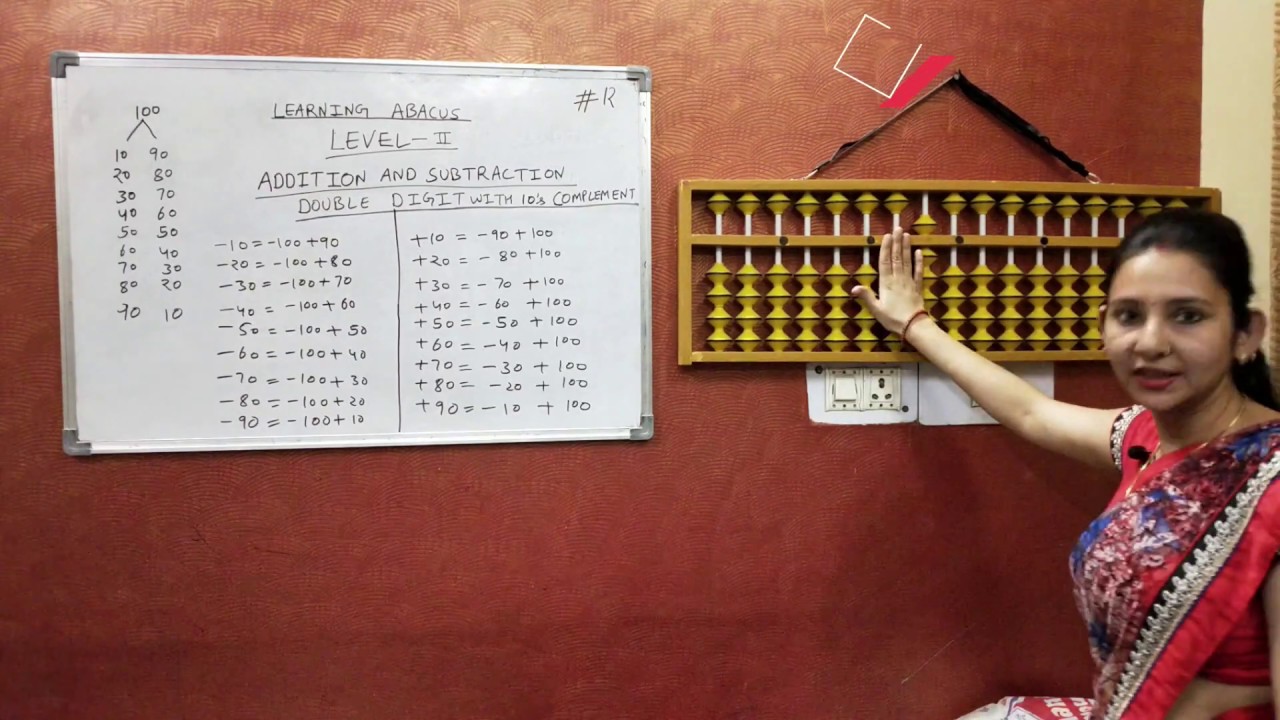 #12
LEARNING ABACUS
LEVEL-II
ADDITION AND SUBTRACTION
DOUBLE DIGIT WITH 10's COMPLEMENT
100
10 90
20 80
30 70
40 60
50 50
60 40
70 30
80 20
90 10
-10=-100+90
-20=-100+80
-30=-100+70
-40=-100+60
-50=-100+50
-60=-100+40
-70=-100+30
-80=-100+20
-90=-100+10
+10=-90+100
+20=-80+100
+30=-70+100
+40=-60+100
+50=-50+100
+60=-40+100
+70=-30+100
+80=-20+100
+90=-10+100